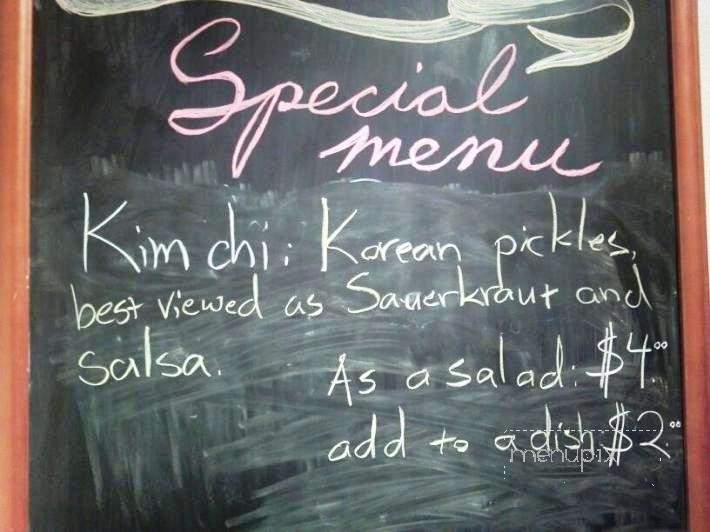 Special
menu
Kim chi: Korean pickles,
best viewed as Sauerkraut and
salsa.
As a salad: $4.00
add to a dish $2.00
menupix